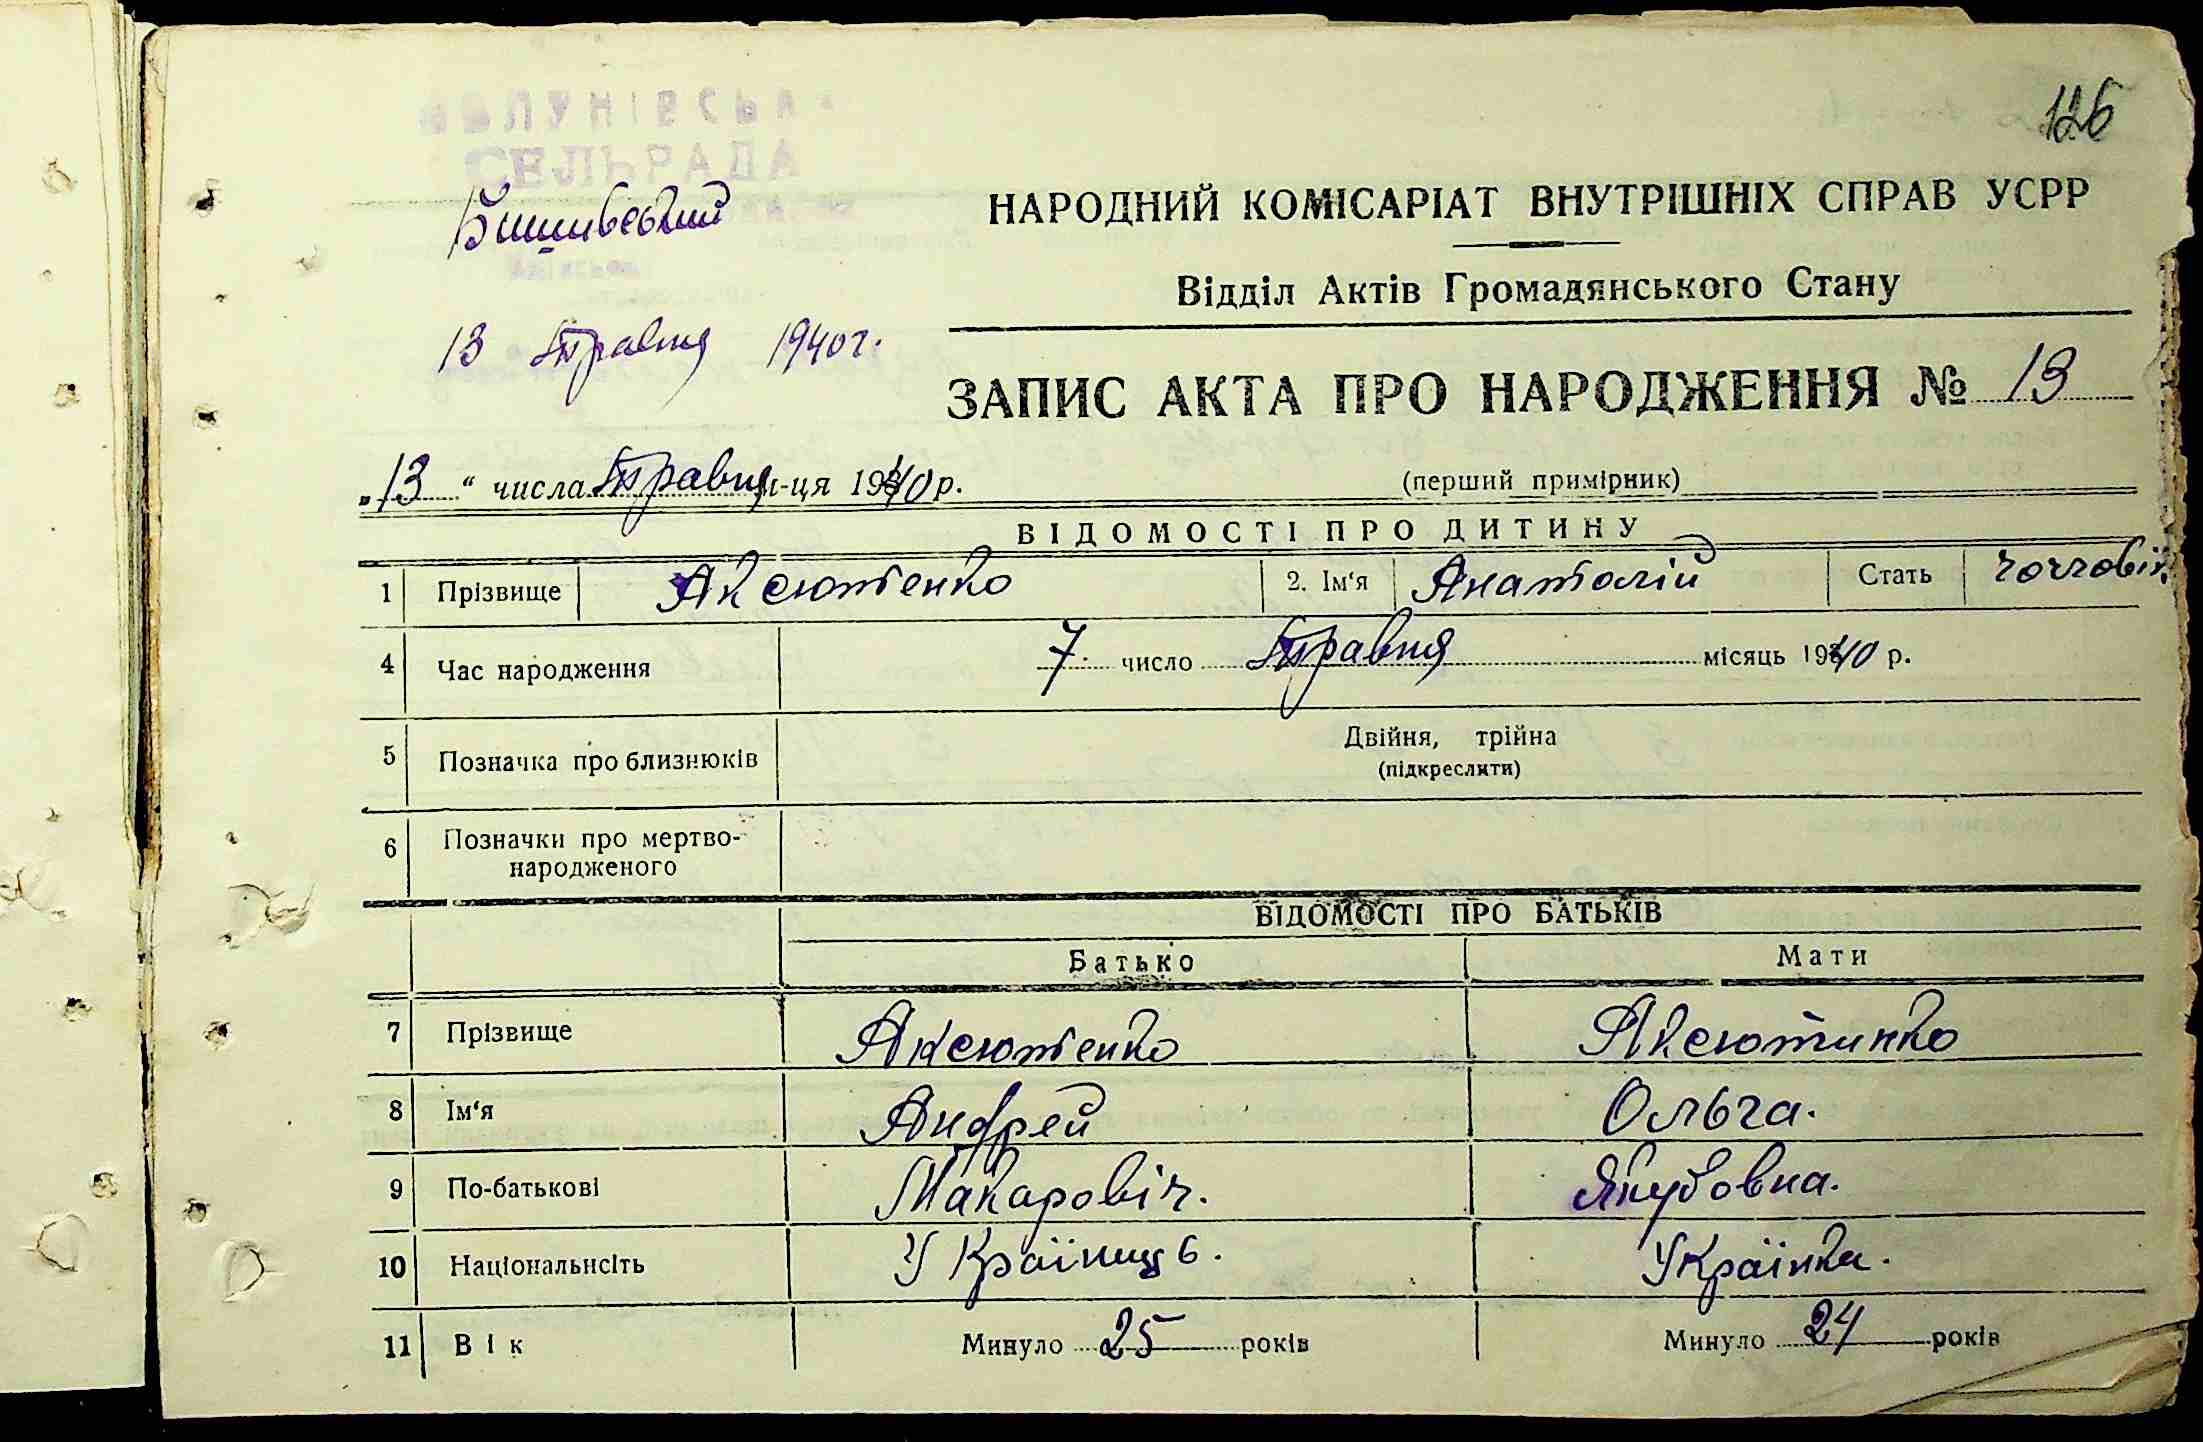 126
СЕЛЬРАДА
НАРОДНИЙ КОМІСАРІАТ ВНУТРІШНІХ СПРАВ УСРР
Відділ Актів Громадянського Стану
13 Травня 1940 г.
ЗАПИС АКТА ПРО НАРОДЖЕННЯ № 13
„13“ числа Травня м-ця 1940 р.
(перший примірник)
ВІДОМОСТІ ПРО ДИТИНУ
1 Прізвище Аксютенко 2. Ім‘я Анатолій Стать
4 Час народження 7 число Травня місяць 1940 р.
5 Позначка про близнюків Двійня, трійна
(підкреслити)
6 Позначки про мертво-
народженого
ВІДОМОСТІ ПРО БАТЬКІВ
Батько Мати
7 Прізвище Аксютенко Аксютинко
8 Ім‘я Андрей Ольга.
9 По-батькові Макаровіч. Якубовна.
10 Національнсіть Українць. Українка.
11 Вік Минуло 25 років Минуло 24 років